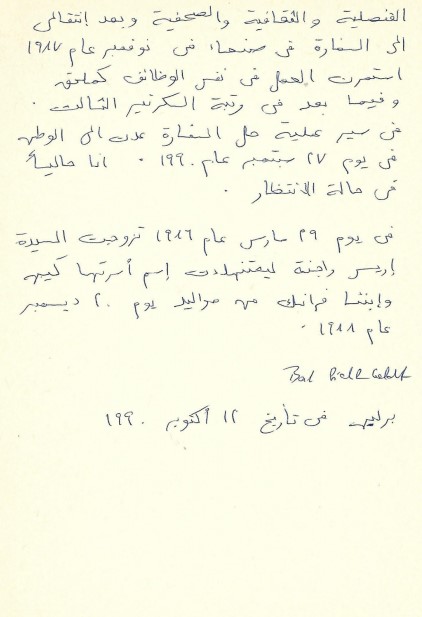 القنصلية والثقافية والصحفية وبعد إنتقالى
الى السفارة فى صنعاء فى نوفمبر عام ١٩٨٧
استمرت العمل فى نفس الوظائف كملحق
وفيما بعد فى رتبة السكرتير الثالث .
فى سير عملية حل السفارة عدت الى الوطن
فى يوم ٢٧ سبتمبر عام ١٩٩٠ . انا حالياً
فى حالة الانتظار .
فى يوم ٢٩ مارس عام ١٩٨٦ تزوجت السيدة
إسم أسرتها
وإبننا فرانك من مواليد يوم ٢٠ ديسمبر
عام ١٩٨٨ .
برلين فى تأريخ ١٢ أكتوبر ١٩٩٠